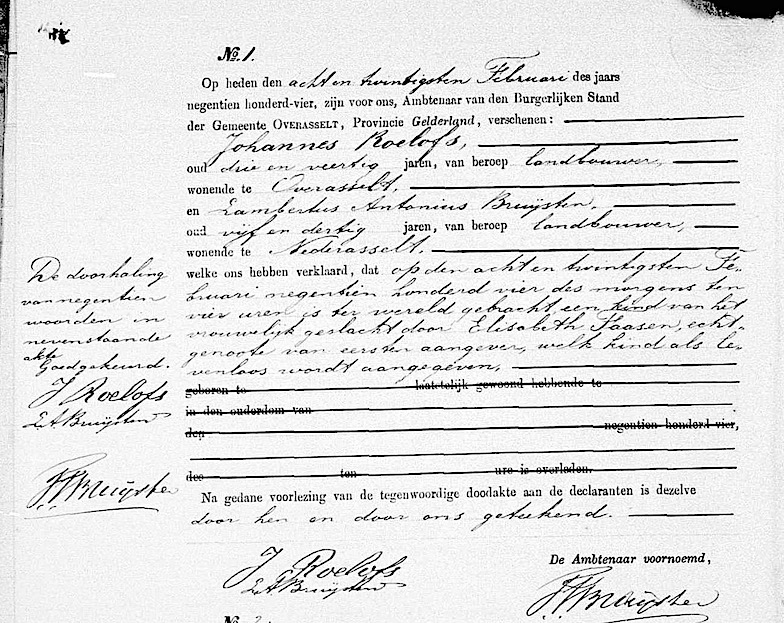 No. 1.
Op heden den acht en twintigsten Februari des jaars
negentien honderd-vier, zijn voor ons, Ambtenaar van den Burgerlijken Stand
der Gemeente OVERASSELT, Provincie Gelderland, verschenen:
Johannes Roelofs,
oud drie en veertig jaren, van beroep landbouwer,
wonende te Overasselt,
en Lambertus Antonius Bruijsten,
oud vijf en dertig jaren, van beroep landbouwer,
wonende te Nederasselt,
welke ons hebben verklaard, dat op den acht en twintigsten Fe-
bruari negentien honderd vier des morgens ten
vier uren is ter wereld gebracht een kind van het
vrouwelijk geslacht door Elisabeth Faasen, echt-
genoote van eersten aangever, welk kind als le-
venloos wordt aangegeven,
geboren te laatstelijk gewoond hebbende te
in den ouderdom van
den negentien honderd vier,
des ten ure is overleden.
Na gedane voorlezing van de tegenwoordige doodakte aan de declaranten is dezelve
door hen en door ons geteekend.
De doorhaling
van negentien
woorden in
nevenstaande
akte
Goedgekeurd.
J Roelofs
L.A. Bruijsten
J Roelofs
L.A. Bruijsten
De Ambtenaar voornoemd,
No. 2.